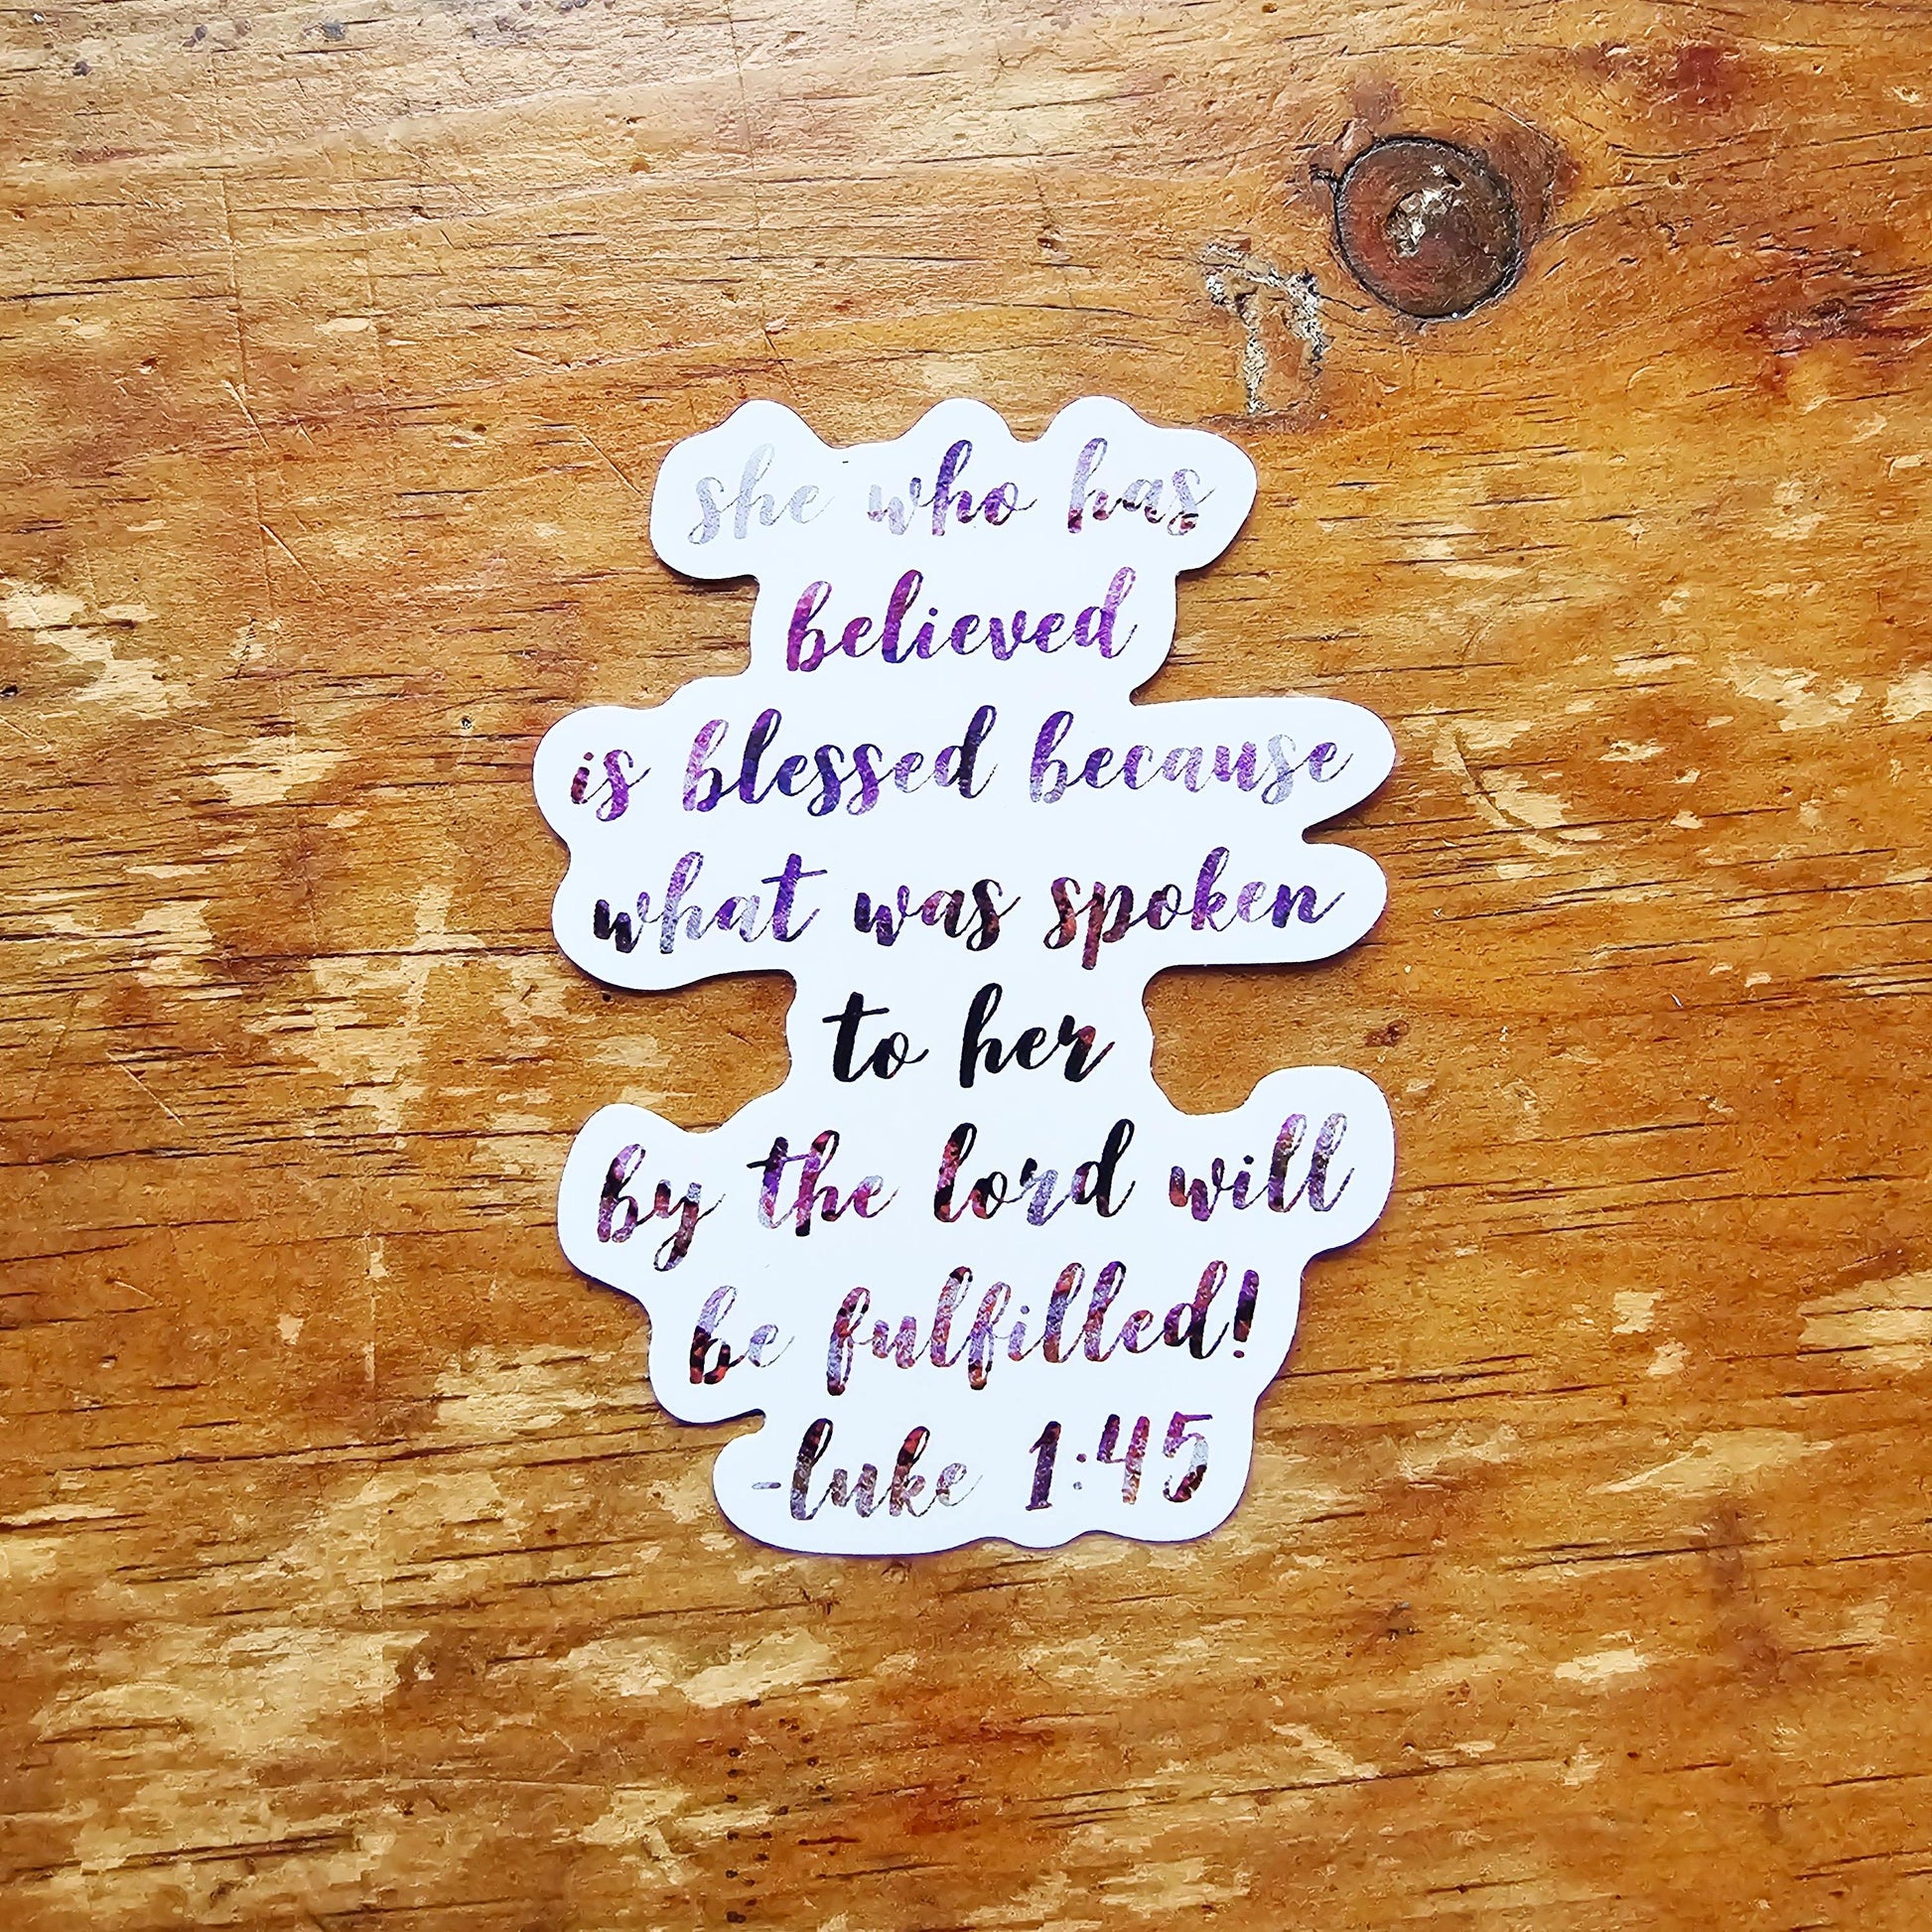 she who has
believed
is blessed because
what was spoken
to her
by the lord will
be fulfilled!
-luke 1:45